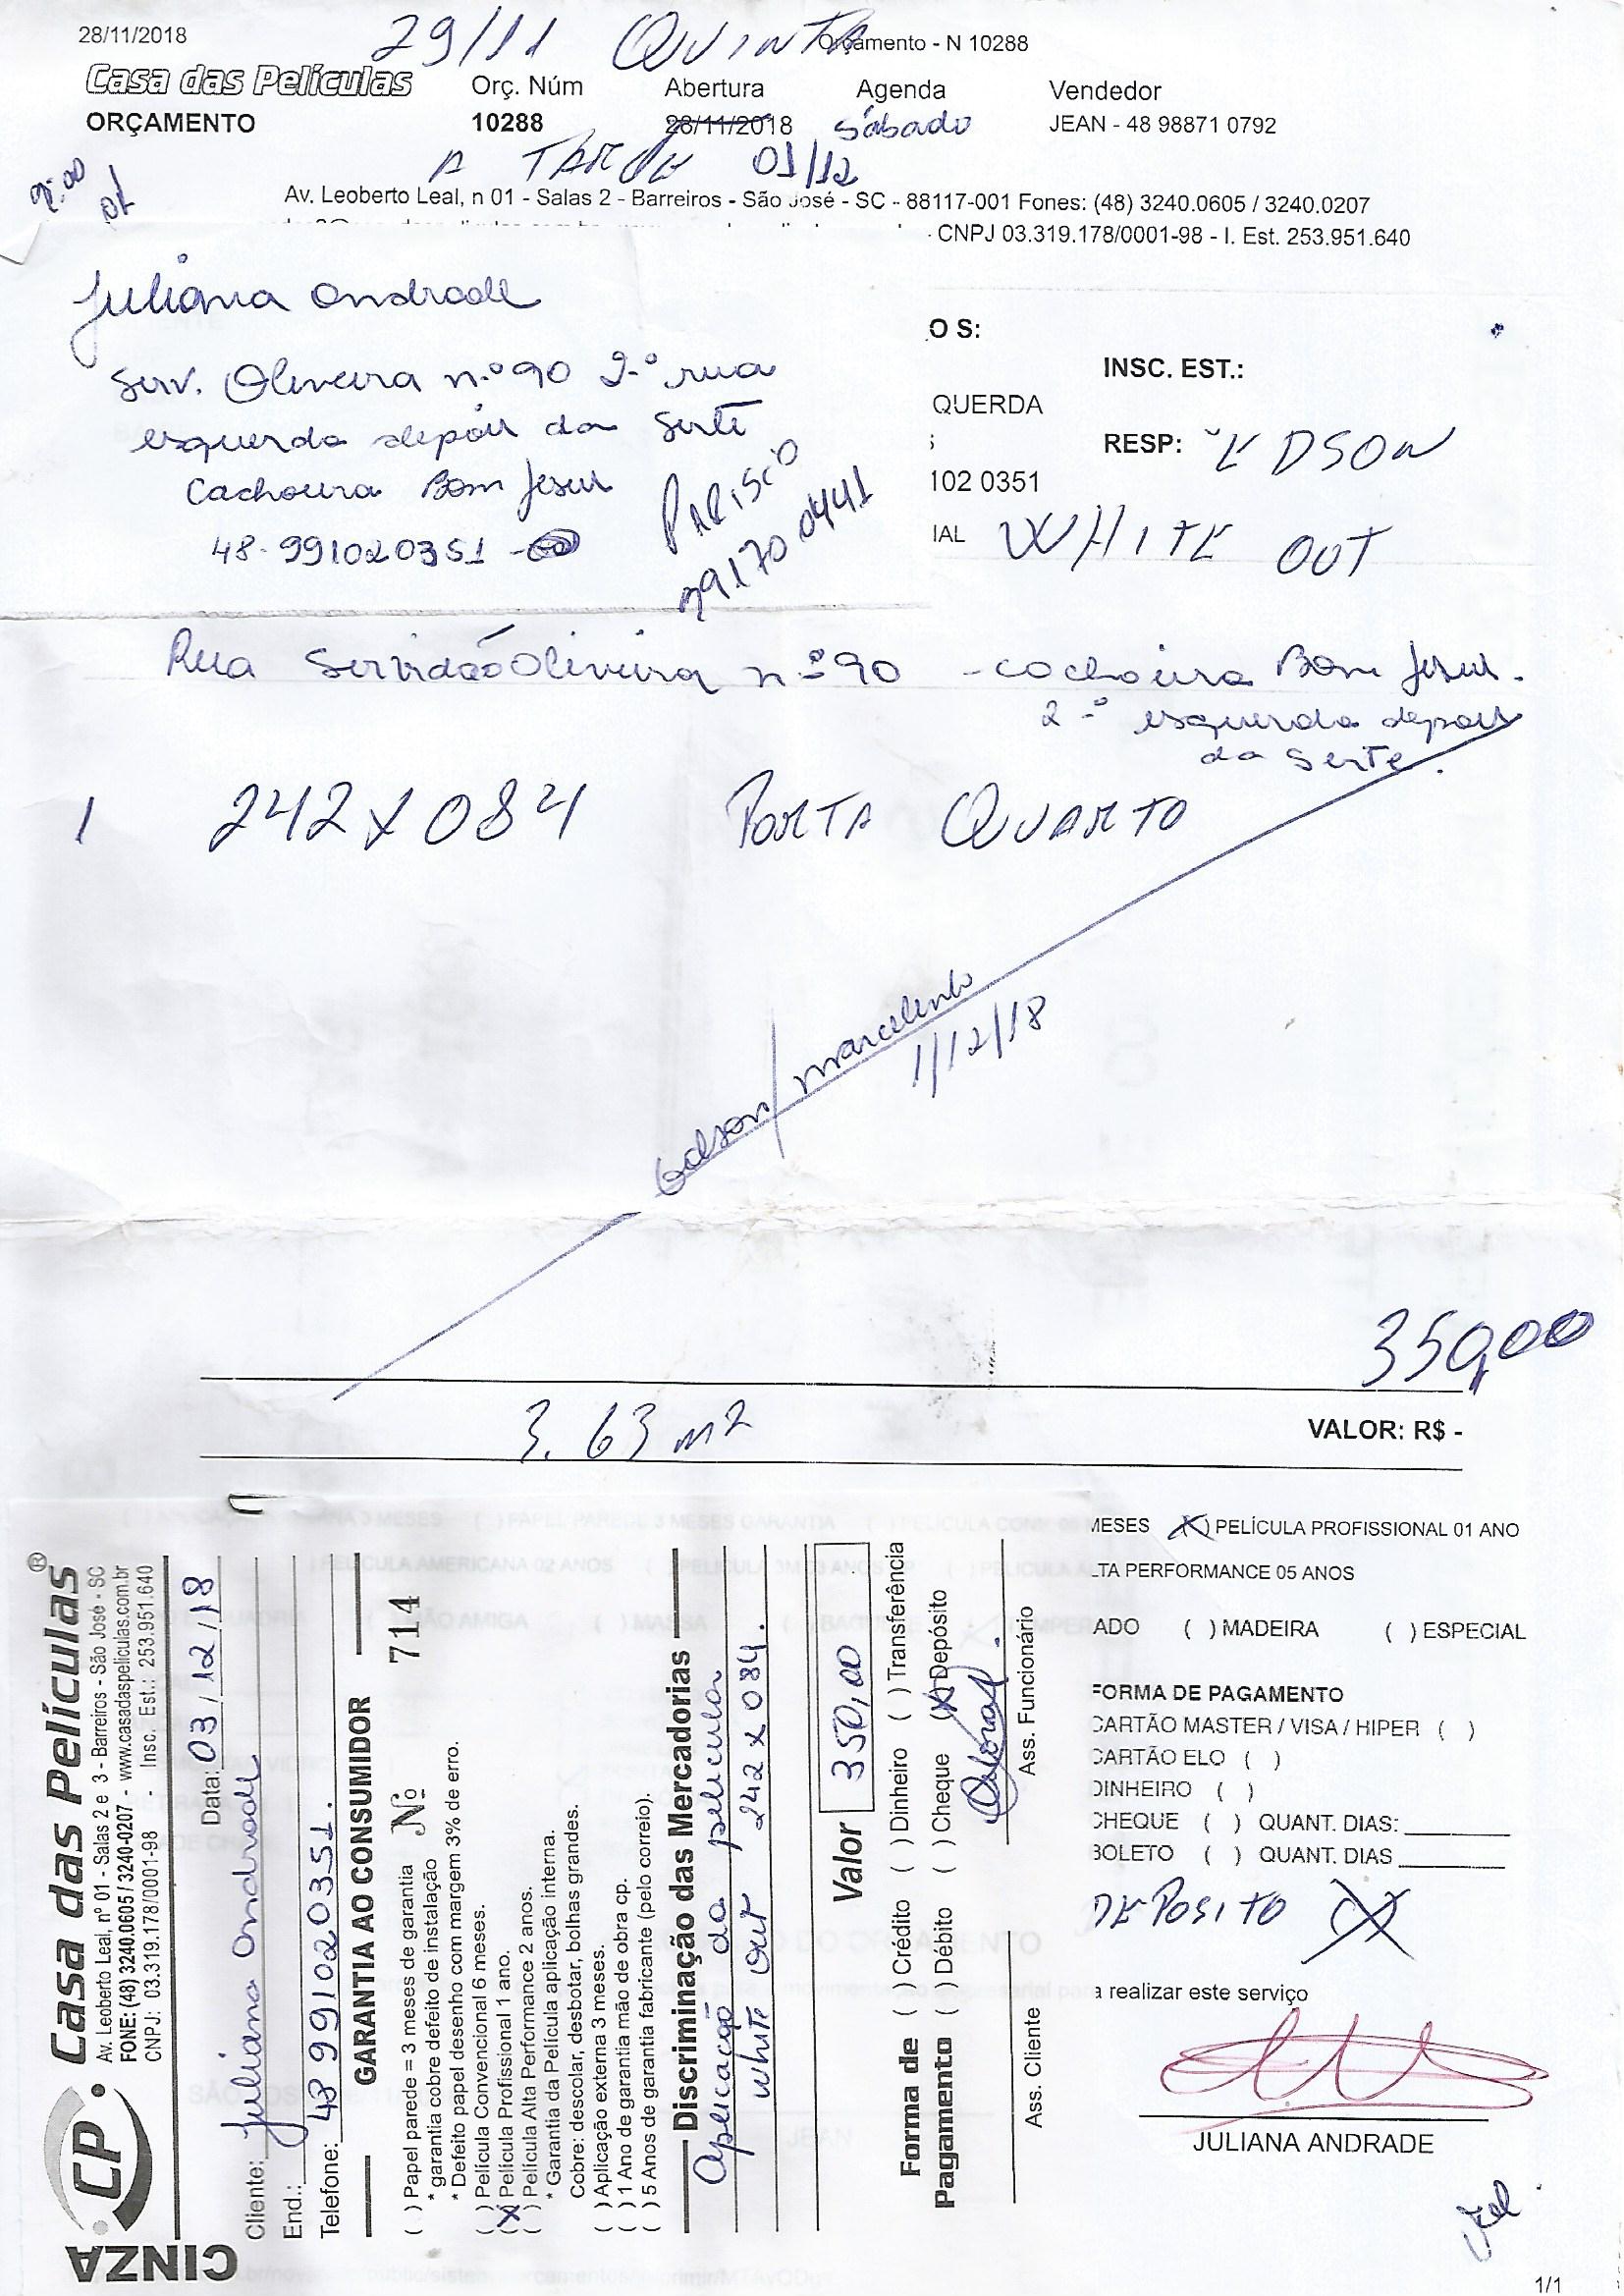 28/11/2018
29/11 QUINTA
Orçamento - N 10288
Casa das Películas
Orç. Núm
Abertura
Agenda
Vendedor
ORÇAMENTO
10288
28/11/2018
Sábado
JEAN - 48 98871 0792
A TARDE 01/12
Av. Leoberto Leal, n 01 - Salas 2 - Barreiros - São José - SC - 88117-001 Fones: (48) 3240.0605 / 3240.0207
- CNPJ 03.319.178/0001-98 - I. Est. 253.951.640
Juliana Andrade
Serv. Oliveira n.º 90 2.ª rua
esquerda depois da Serte
Cachoeira Bom Jesus
48-991020351
99170 0441
O S:
INSC. EST.:
QUERDA
RESP: EDSON
102 0351
IAL WHITE OUT
Rua Servidão Oliveira nº 90 - cachoeira Bom Jesus.
2ª esquerda depois
da Serte.
1 242 X 084 PORTA QUARTO
Edson / marcelinho
1/12/18
350,00
3.63 m2
VALOR: R$ -
MESES (X) PELÍCULA PROFISSIONAL 01 ANO
LTA PERFORMANCE 05 ANOS
ADO ( ) MADEIRA ( ) ESPECIAL
FORMA DE PAGAMENTO
CARTÃO MASTER / VISA / HIPER ( )
CARTÃO ELO ( )
DINHEIRO ( )
CHEQUE ( ) QUANT. DIAS:
BOLETO ( ) QUANT. DIAS
DEPOSITO X
a realizar este serviço
JULIANA ANDRADE
1/1
CINZA
CP
Casa das Películas®
Av. Leoberto Leal, nº 01 - Salas 2 e 3 - Barreiros - São José - SC
FONE: (48) 3240.0605 / 3240-0207 - www.casadaspeliculas.com.br
CNPJ: 03.319.178/0001-98 - Insc. Est.: 253.951.640
Data: 03/12/18
Cliente: Juliana Andrade
End.:
Telefone: 48 991020351.
GARANTIA AO CONSUMIDOR
( ) Papel parede = 3 meses de garantia Nº 714
* garantia cobre defeito de instalação
* Defeito papel desenho com margem 3% de erro.
( ) Película Convencional 6 meses.
(X) Película Profissional 1 ano.
( ) Película Alta Performance 2 anos.
* Garantia da Película aplicação interna.
Cobre: descolar, desbotar, bolhas grandes.
( ) Aplicação externa 3 meses.
( ) 1 Ano de garantia mão de obra cp.
( ) 5 Anos de garantia fabricante (pelo correio).
Discriminação das Mercadorias
Aplicação da película
white out 242 x 084.
Valor 350,00
Forma de Pagamento
( ) Crédito ( ) Dinheiro ( ) Transferência
( ) Débito ( ) Cheque (X) Depósito
Ass. Cliente
Ass. Funcionário